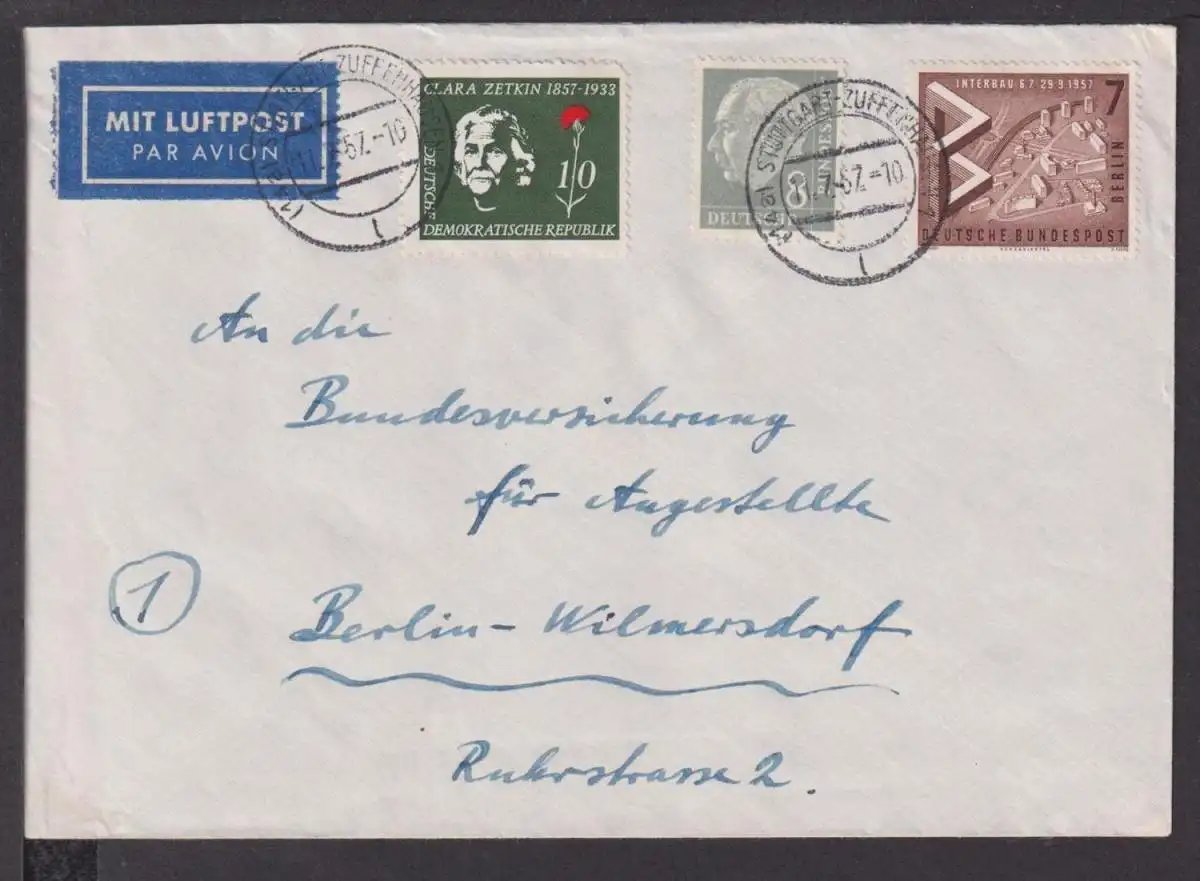 MIT LUFTPOST
PAR AVION
CLARA ZETKIN 1857-1933
10
DEUTSCHE
DEMOKRATISCHE REPUBLIK
8
DEUTSCHE
INTERBAU 6.7.-29.9.1957
7
BERLIN
DEUTSCHE BUNDESPOST
STUTTGART-ZUFFENHAUSEN
.57.-10
STUTTGART-ZUFFENHA
.57.-10
An die
Bundesversicherung
für Angestellte
1
Berlin-Wilmersdorf
Ruhrstrasse 2.